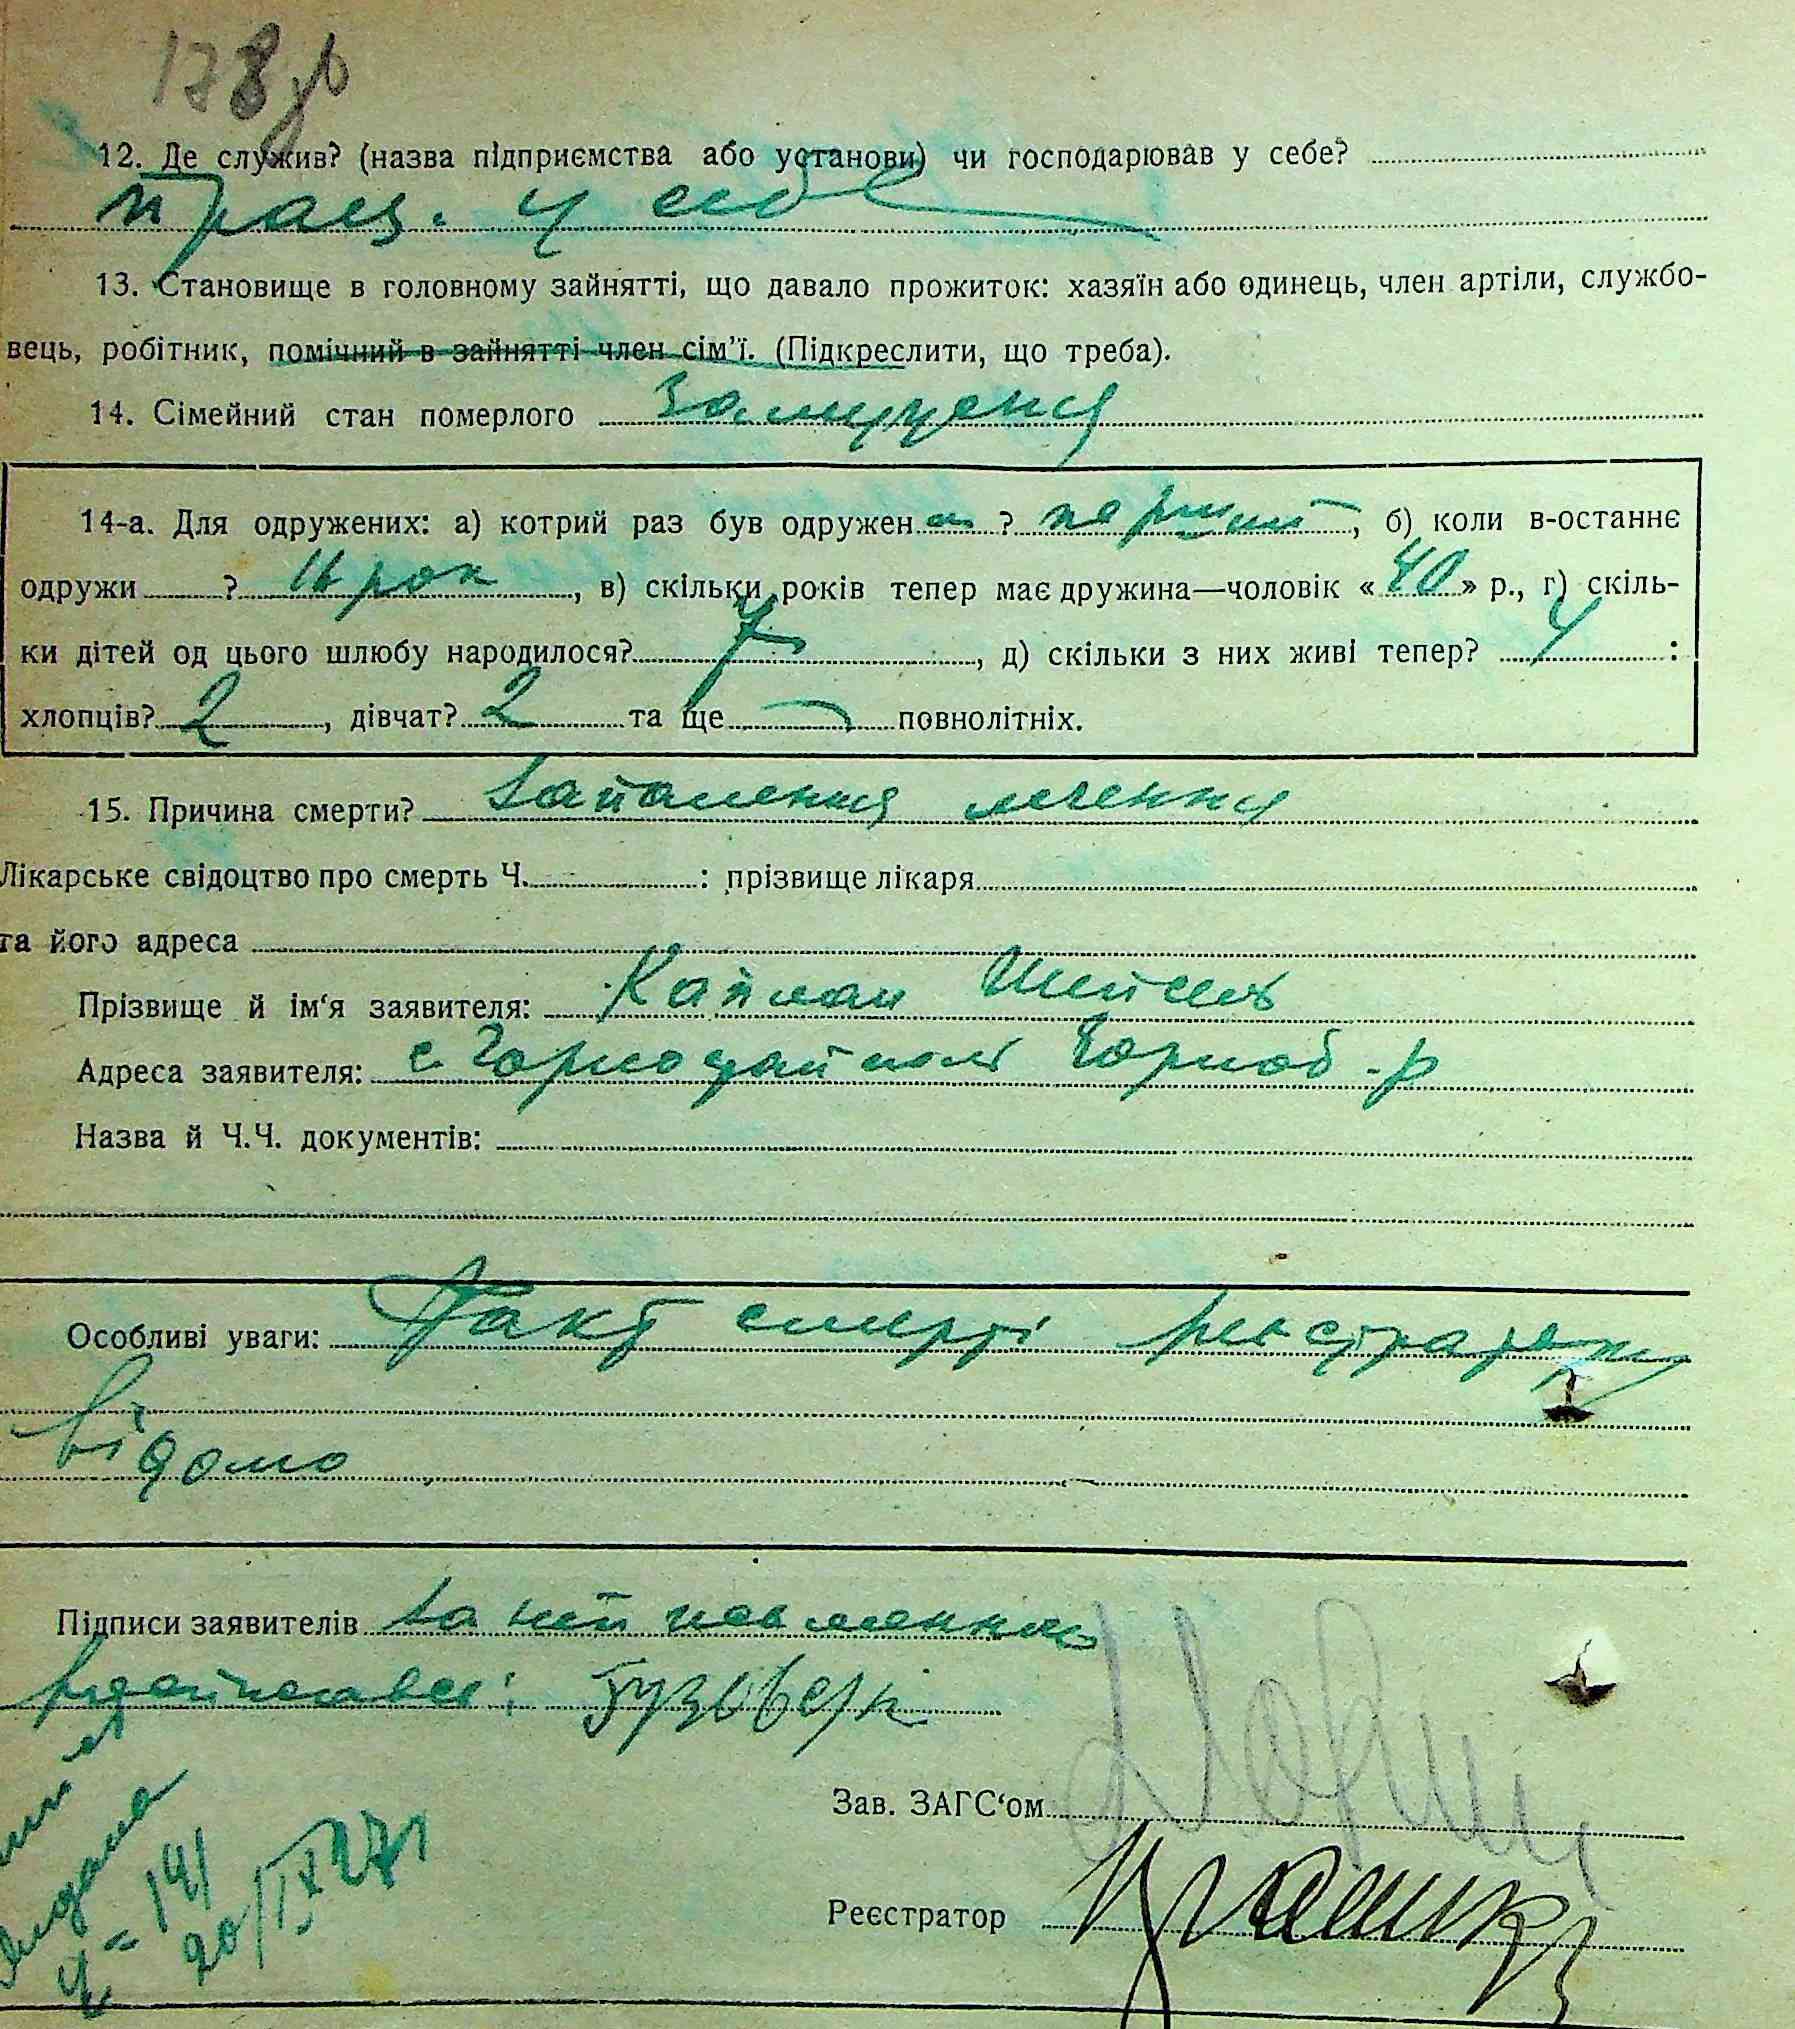 178 зв
12. Де служив? (назва підприємства або установи) чи господарював у себе?
прац. у себе
13. Становище в головному зайнятті, що давало прожиток: хазяїн або одинець, член артіли, службо-
вець, робітник, помічний в зайнятті член сім'ї. (Підкреслити, що треба).
14. Сімейний стан померлого замужня
14-а. Для одружених: а) котрий раз був одружен ? перший, б) коли в-останнє
одружи ? 16 рок, в) скільки років тепер має дружина—чоловік «40» р., г) скіль-
ки дітей од цього шлюбу народилося? 7, д) скільки з них живі тепер? 4 :
хлопців? 2, дівчат? 2 та ще — повнолітніх.
15. Причина смерти? запалення легення
Лікарське свідоцтво про смерть Ч. : прізвище лікаря
та його адреса
Прізвище й ім'я заявителя: Каплан
Адреса заявителя: с. Чорноб. р
Назва й Ч.Ч. документів:
Особливі уваги: Факт смерті
відомо
Підписи заявителів за
розписався:
Зав. ЗАГС'ом
Реєстратор
видана
Ч = 191
20/IX 27 р